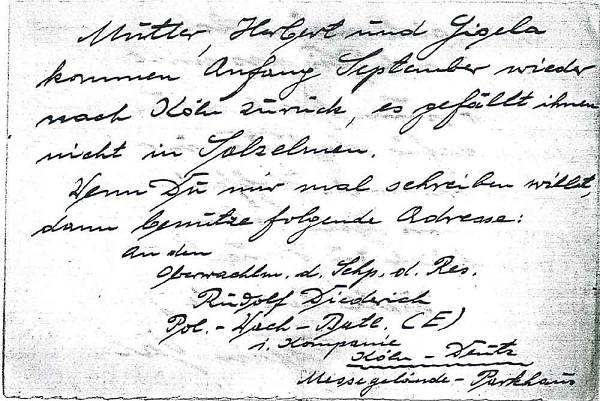 Mutter, Herbert und Gigela
kommen Anfang September wieder
nach Köln zurück, es gefällt ihnen
nicht in Salzelmen.
Wenn Du mir mal schreiben willst,
dann benütze folgende Adresse:
An den
Oberwachtm. d. Schp. d. Res.
Rudolf Diederich
Pol.-Wach-Batl. (E)
1. Kompanie
Köln-Deutz
Messegelände-Parkhaus